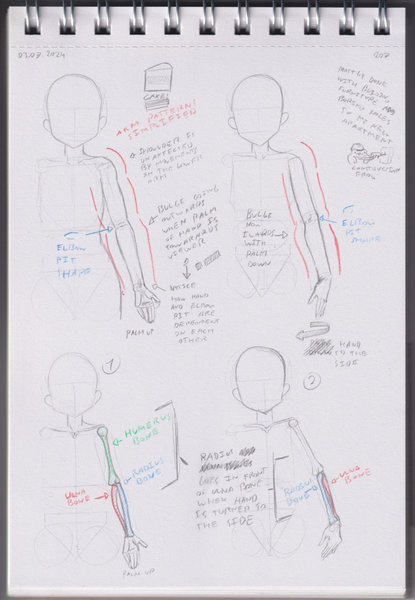 03.03.2024
207
CAKE!
ARM PATTERNS
SIMPLIFIED
SHOULDER IS
UNAFFECTED
BY MOVEMENTS
IN THE LOWER
ARM
BULGE GOING
OUTWARDS
WHEN PALM
OF HAND IS
TOWARDS
VIEWER
ELBOW
PIT
SHAPE
NOTICE
HOW HAND
AND ELBOW
PIT ARE
DEPENDENT
ON EACH
OTHER
PALM UP
MOSTLY DONE
WITH BUILDING
FURNITURE AND
TO MY NEW
APARTMENT
BULGE
INWARDS
WITH
PALM
DOWN
ELBOW
PIT
HAND
TO THE
SIDE
1
HUMERUS
BONE
RADIUS
BONE
ULNA
BONE
PALM UP
2
RADIUS
GOES IN FRONT
OF ULNA BONE
WHEN HAND
IS TURNED TO
THE SIDE
RADIUS
BONE
ULNA
BONE